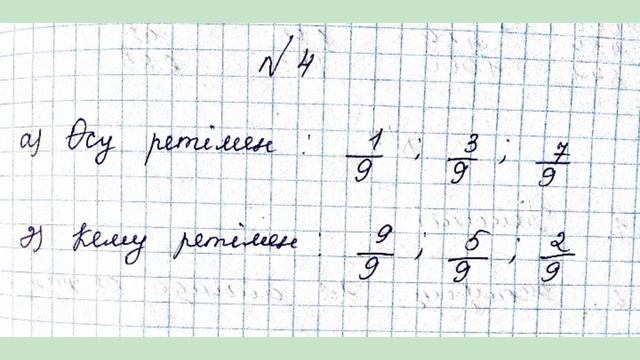 № 4
а) Өсу ретімен : 1/9 ; 3/9 ; 7/9
ә) Кему ретімен : 9/9 ; 5/9 ; 2/9